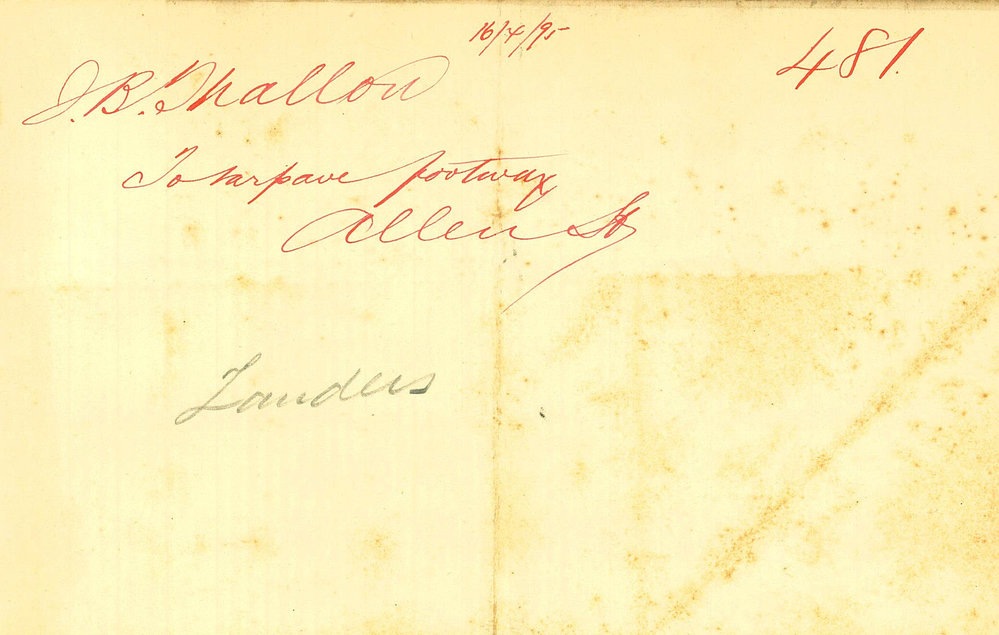 16/4/95
481.
J. B. Mallon
To tarpave footway
Allen St
Landers